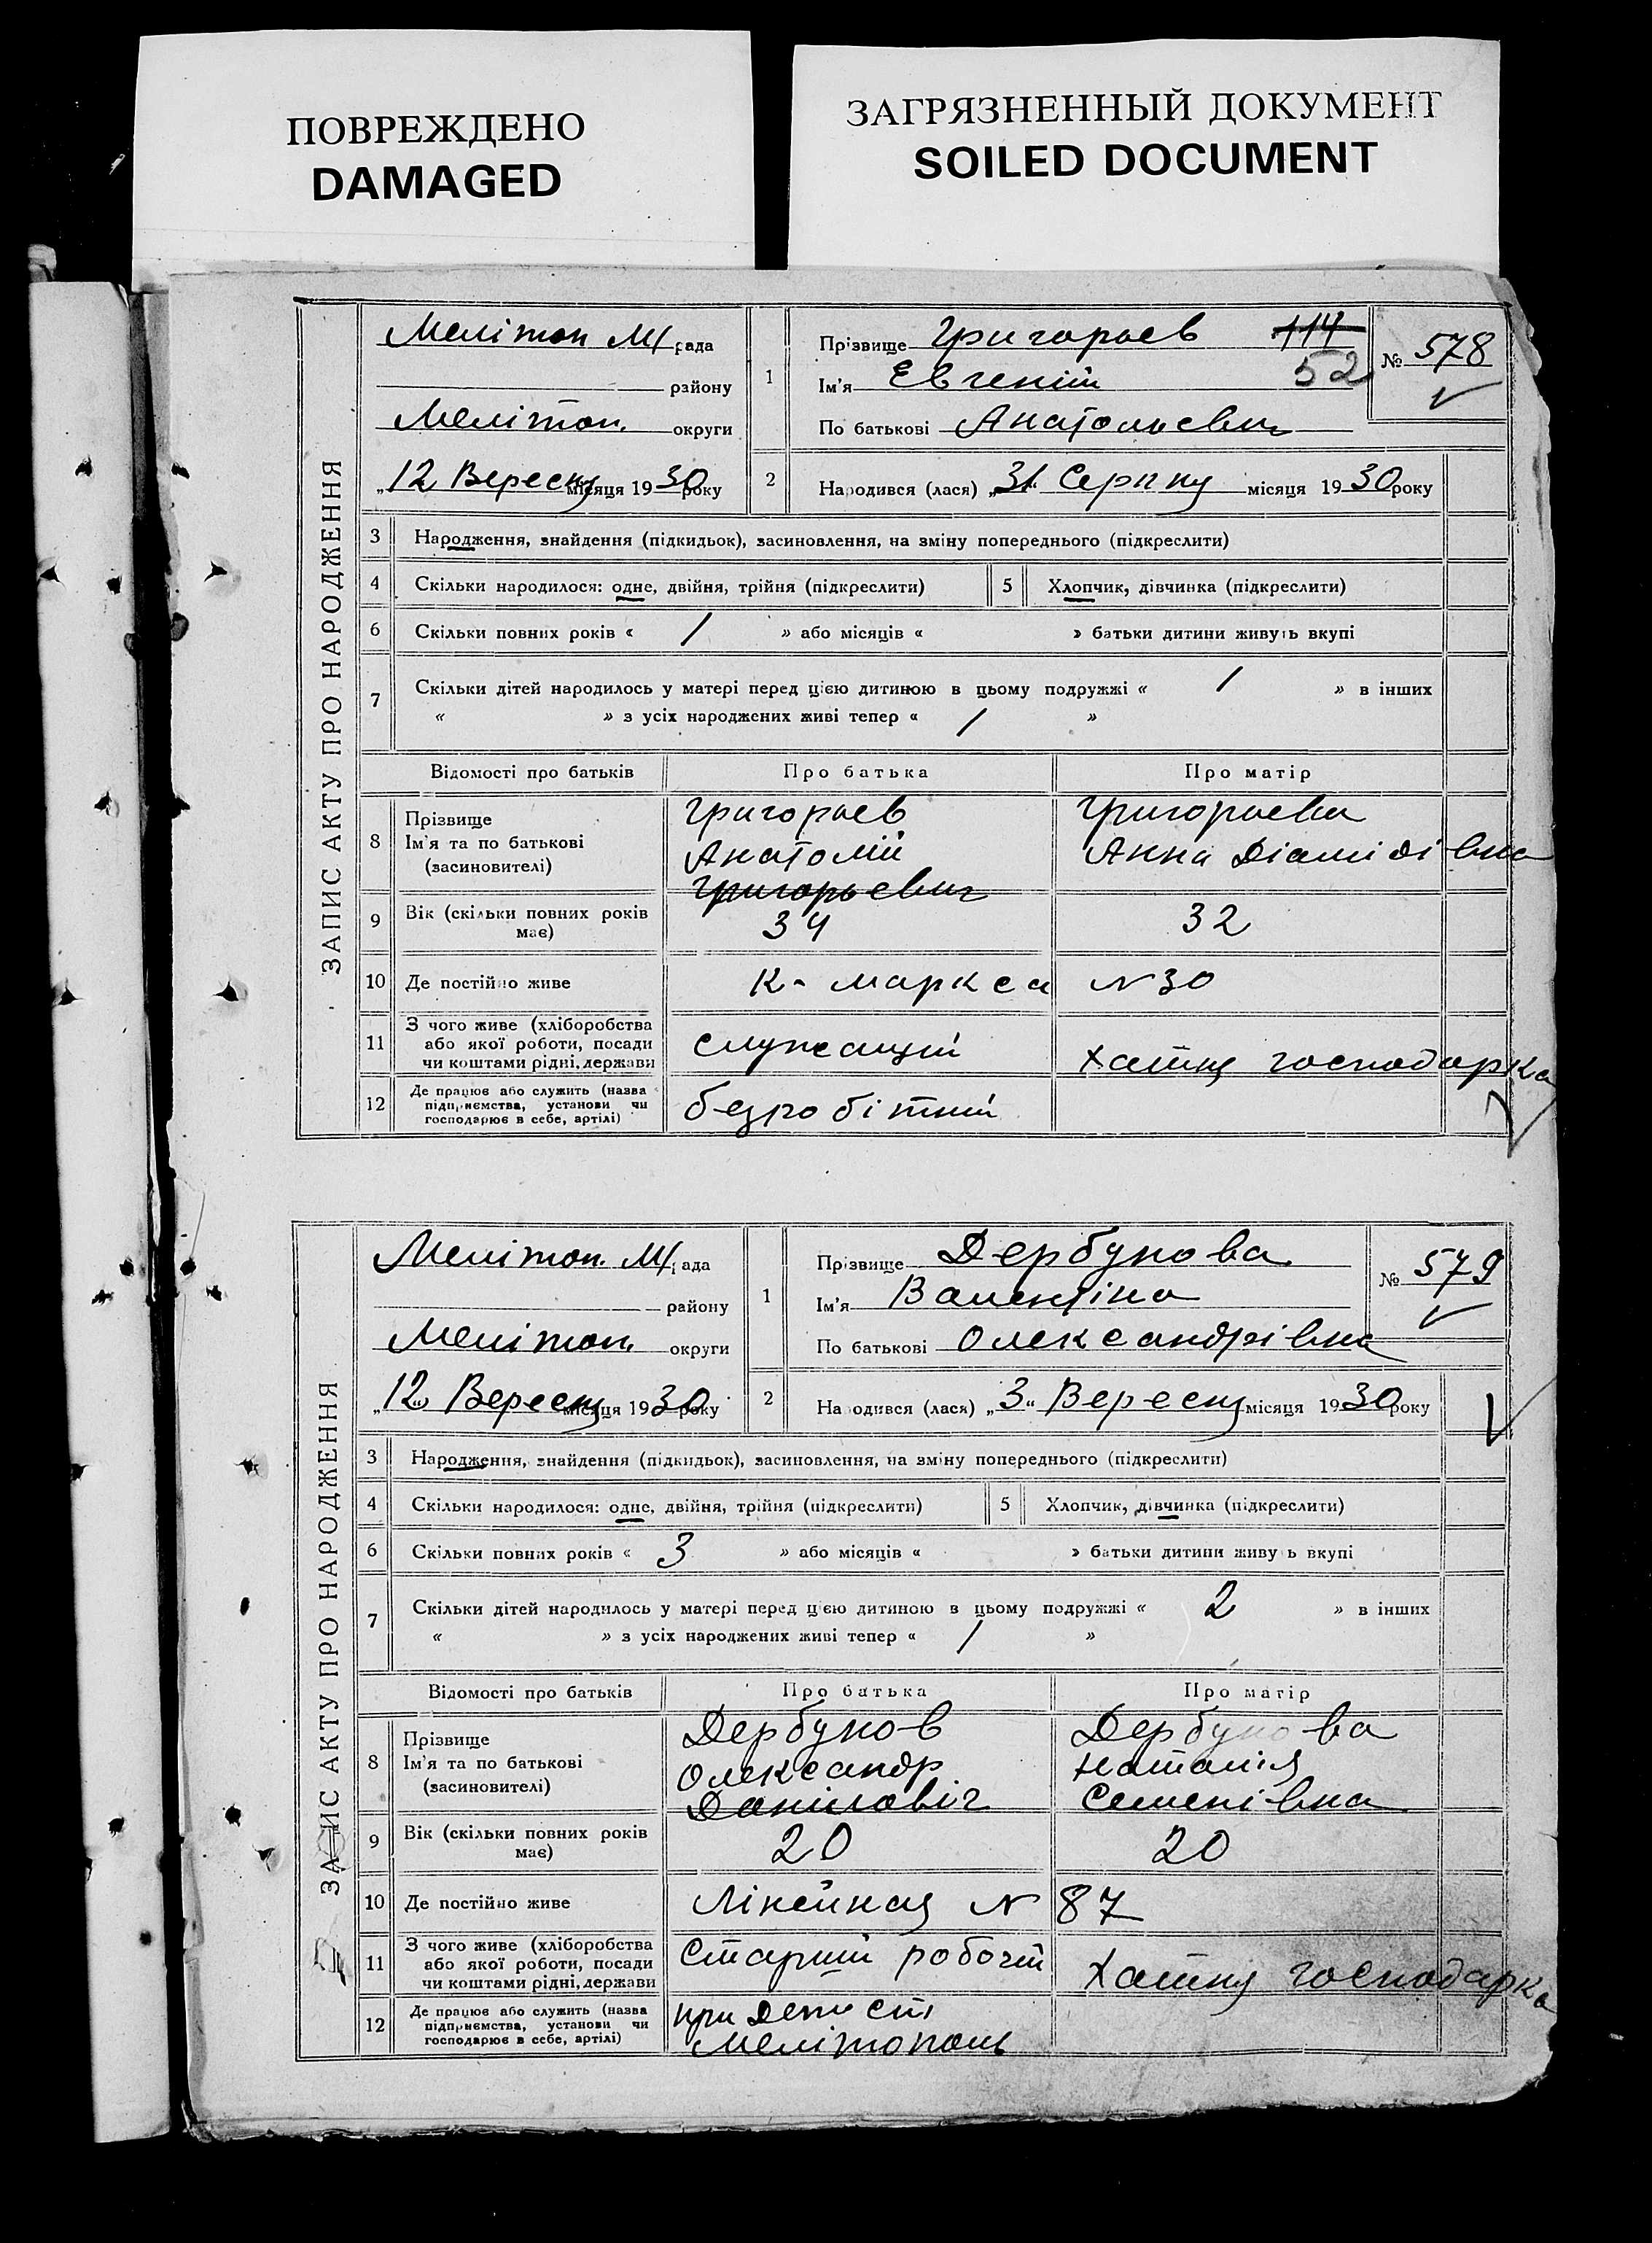 ПОВРЕЖДЕНО
DAMAGED
ЗАГРЯЗНЕННЫЙ ДОКУМЕНТ
SOILED DOCUMENT
ЗАПИС АКТУ ПРО НАРОДЖЕННЯ
Мелітоп М/рада
району
Мелітоп. округи
„12 Вересня місяця 1930 року
1 Прізвище Григорьев 114
Ім'я Евгеній 52
По батькові Анатольевич
№ 578
2 Народився (лася) „31" Серпня місяця 1930 року
3 Народження, знайдення (підкидьок), засиновлення, на зміну попереднього (підкреслити)
4 Скільки народилося: одне, двійня, трійня (підкреслити) 5 Хлопчик, дівчинка (підкреслити)
6 Скільки повних років « 1 » або місяців « » батьки дитини живуть вкупі
7 Скільки дітей народилось у матері перед цією дитиною в цьому подружжі « 1 » в інших
« » з усіх народжених живі тепер « 1 »
Відомості про батьків Про батька Про матір
8 Прізвище Григорьев Григорьева
Ім'я та по батькові Анатолій Анна Діамідівна
(засиновителі) Григорьевич
9 Вік (скільки повних років має) 34 32
10 Де постійно живе К-Маркса N 30
11 З чого живе (хліборобства або якої роботи, посади чи коштами рідні, держави служащий Хатня господарка
12 Де працює або служить (назва підприємства, установи чи господарює в себе, артілі) безробітний
ЗАПИС АКТУ ПРО НАРОДЖЕННЯ
Мелітоп. М/рада
району
Мелітоп. округи
„12" Вересня місяця 1930 року
1 Прізвище Дербунова
Ім'я Валентіна
По батькові Олександрівна
№ 579
2 Народився (лася) „3" Вересня місяця 1930 року
3 Народження, знайдення (підкидьок), засиновлення, на зміну попереднього (підкреслити)
4 Скільки народилося: одне, двійня, трійня (підкреслити) 5 Хлопчик, дівчинка (підкреслити)
6 Скільки повних років « 3 » або місяців « » батьки дитини живуть вкупі
7 Скільки дітей народилось у матері перед цією дитиною в цьому подружжі « 2 » в інших
« » з усіх народжених живі тепер « 1 »
Відомості про батьків Про батька Про матір
8 Прізвище Дербунов Дербунова
Ім'я та по батькові Олександр Наталія
(засиновителі) Данілович Семенівна
9 Вік (скільки повних років має) 20 20
10 Де постійно живе Лінейная N 87
11 З чого живе (хліборобства або якої роботи, посади чи коштами рідні, держави Старший робочий Хатня господарка
12 Де працює або служить (назва підприємства, установи чи господарює в себе, артілі) при Депо ст
Мелітополь